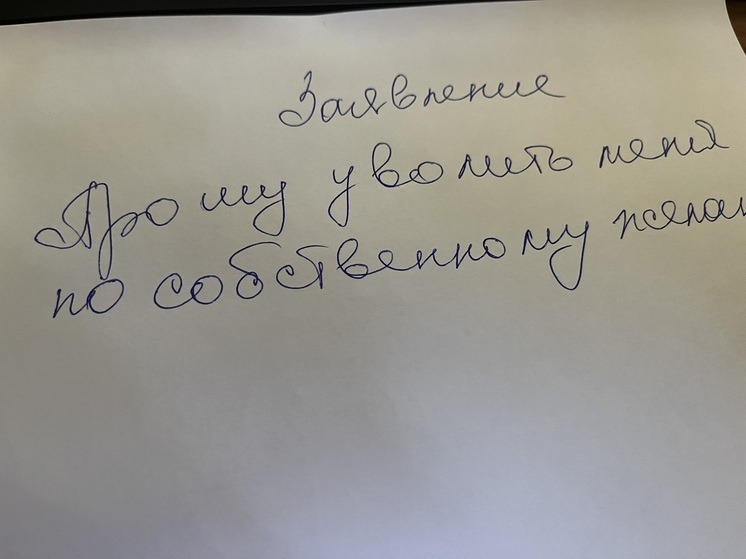 Заявление
Прошу уволить меня
по собственному